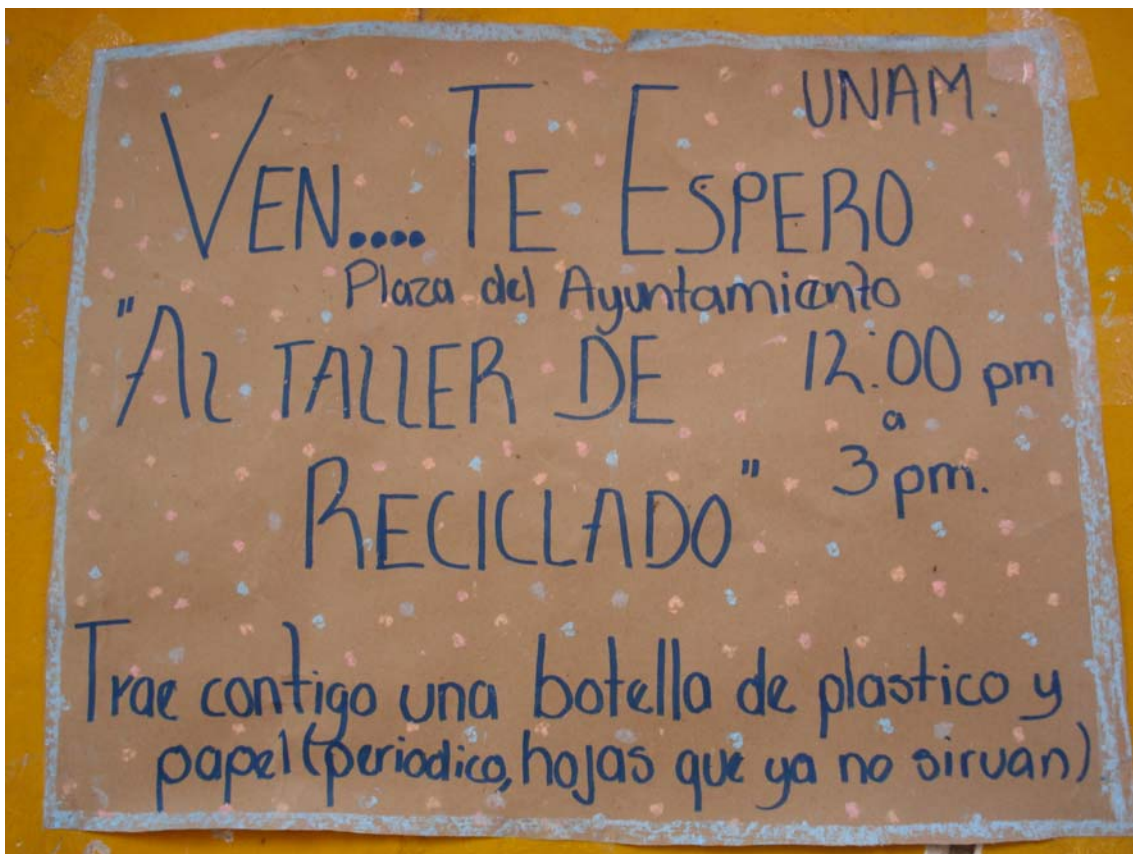 UNAM.
VEN.... TE ESPERO
Plaza del Ayuntamiento
"AL TALLER DE
12:00 pm
a
3 pm.
RECICLADO"
Trae contigo una botella de plastico y
papel (periodico, hojas que ya no sirvan)